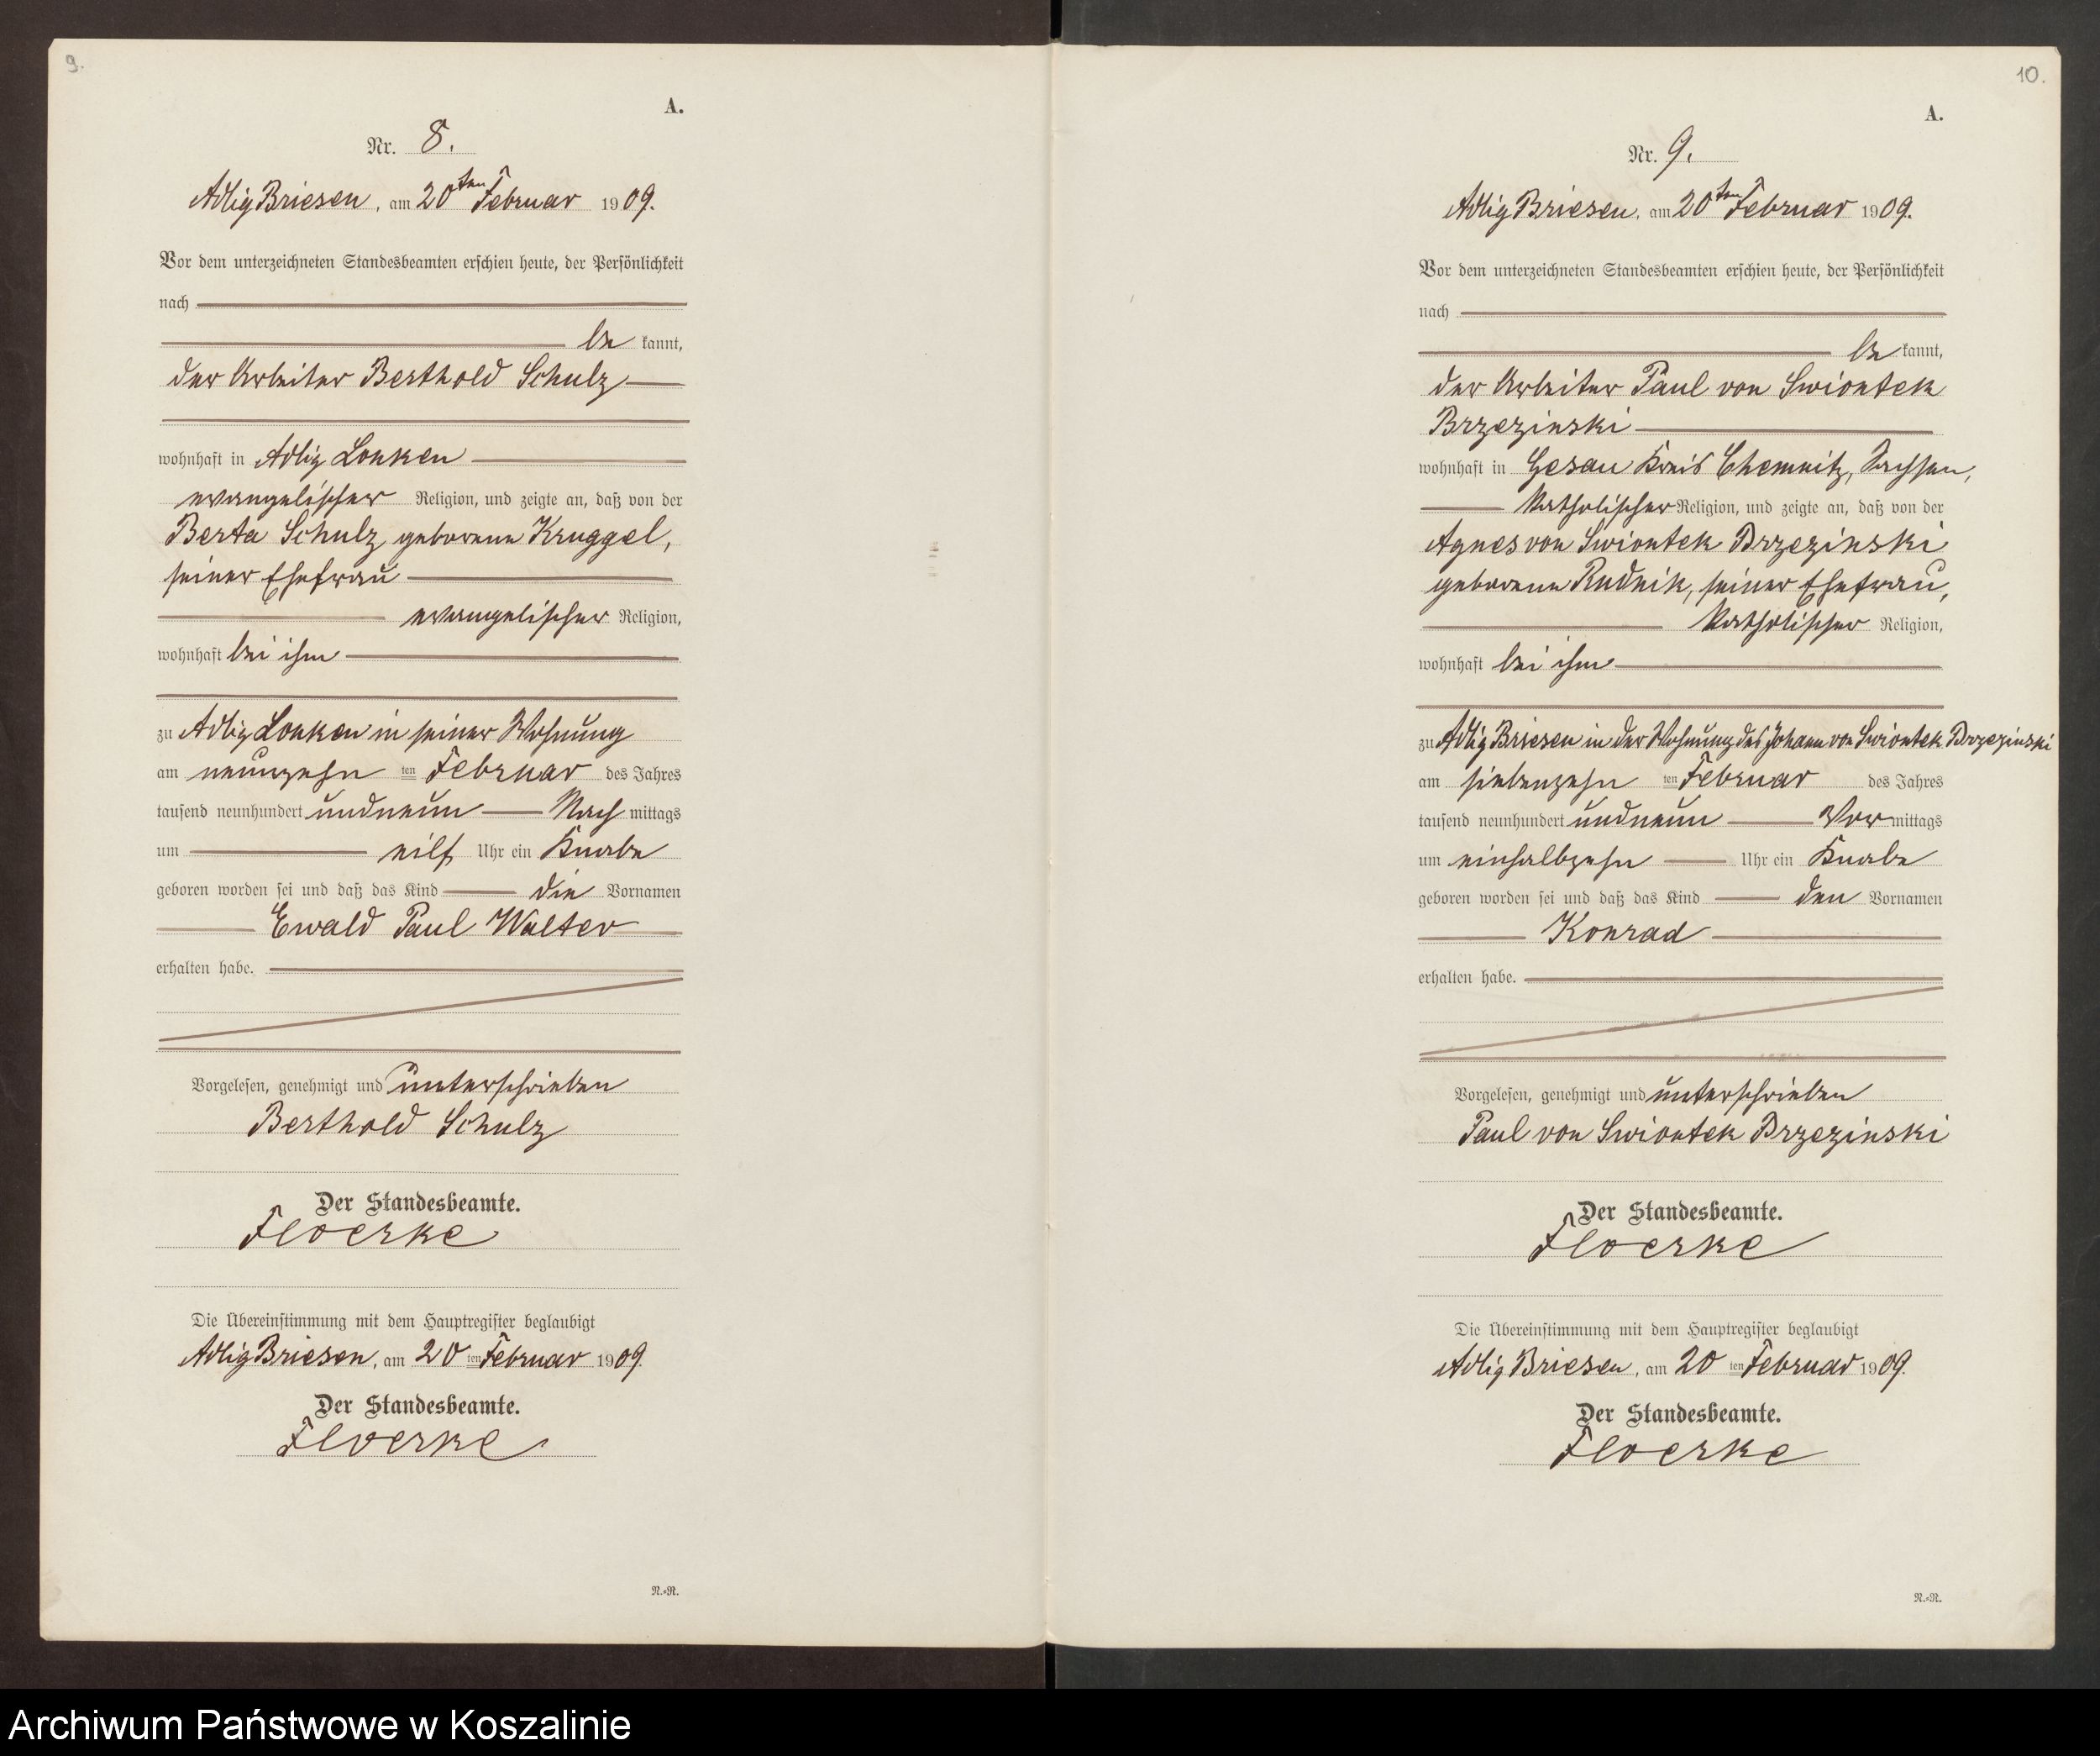 9.
A.
Nr. 8.
Adlig Briesen, am 20ten Februar 1909.
Vor dem unterzeichneten Standesbeamten erschien heute, der Persönlichkeit
nach
be kannt,
der Arbeiter Berthold Schulz
wohnhaft in Adlig Lonken
evangelischer Religion, und zeigte an, daß von der
Berta Schulz geborene Kruggel,
seiner Ehefrau
evangelischer Religion,
wohnhaft bei ihm
zu Adlig Lonken in seiner Wohnung
am neunzehn ten Februar des Jahres
tausend neunhundert undneun Nach mittags
um eilf Uhr ein Knabe
geboren worden sei und daß das Kind die Vornamen
Ewald Paul Walter
erhalten habe.
Vorgelesen, genehmigt und unterschrieben
Berthold Schulz
Der Standesbeamte.
Floerke
Die Übereinstimmung mit dem Hauptregister beglaubigt
Adlig Briesen, am 20 ten Februar 1909.
Der Standesbeamte.
Floerke
N.-N.
10.
A.
Nr. 9.
Adlig Briesen, am 20ten Februar 1909.
Vor dem unterzeichneten Standesbeamten erschien heute, der Persönlichkeit
nach
be kannt,
der Arbeiter Paul von Swiontek
Brzezinski
wohnhaft in Gesau Kreis Chemnitz, Sachsen,
katholischer Religion, und zeigte an, daß von der
Agnes von Swiontek Brzezinski
geborene Rudnik, seiner Ehefrau,
katholischer Religion,
wohnhaft bei ihm
zu Adlig Briesen in der Wohnung des Johann von Swiontek Brzezinski
am siebenzehn ten Februar des Jahres
tausend neunhundert undneun Vor mittags
um einhalbzehn Uhr ein Knabe
geboren worden sei und daß das Kind den Vornamen
Konrad
erhalten habe.
Vorgelesen, genehmigt und unterschrieben
Paul von Swiontek Brzezinski
Der Standesbeamte.
Floerke
Die Übereinstimmung mit dem Hauptregister beglaubigt
Adlig Briesen, am 20 ten Februar 1909.
Der Standesbeamte.
Floerke
N.-N.
Archiwum Państwowe w Koszalinie